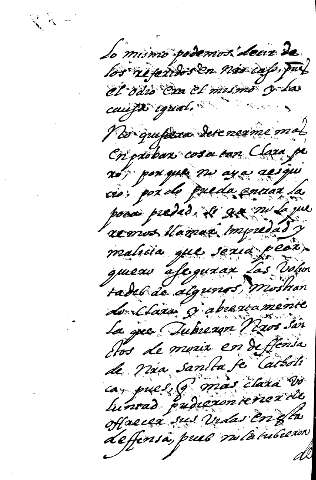 Lo mismo podemos decir de
los referidos en nro caso, pues
el odio era el mismo y la
causa igual.
No quisiera detenerme mas
en probar cosa tan clara pe
ro, porque no aya resqui
cio, por do pueda entrar la
poca piedad, si ya no la que
remos llamar Impiedad y
malicia que seria peor,
quiero asegurar las Volun
tades de algunos, mostran
do clara, y abiertamente
la que tubieron Nros san
ctos de morir en deffensa
de Nra sancta fe Catholi
ca, pues, q mas clara vo
luntad pudieron tener de
offrecer sus vidas en esta
deffensa, pues no la tubieron